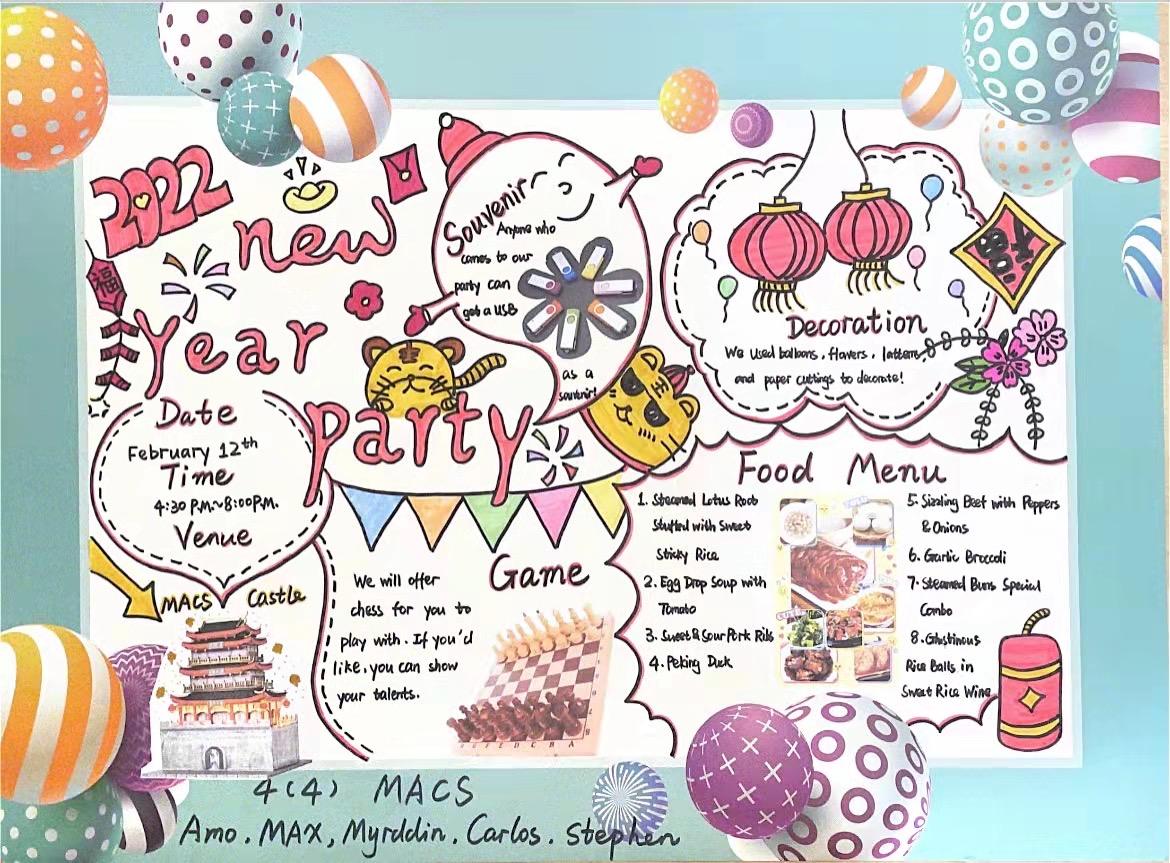 2022
new
year
party
福
Souvenir
Anyone who
comes to our
party can
get a USB
as a
souvenir!
Decoration
We used balloons, flowers, lattern
and paper cuttings to decorate!
Date
February 12th
Time
4:30 P.M.~8:00P.M.
Venue
MACS Castle
Game
We will offer
chess for you to
play with. If you'd
like, you can show
your talents.
Food Menu
1. Steamed Lotus Root
Stuffed with Sweet
Sticky Rice
2. Egg Drop Soup with
Tomato
3. Sweet & Sour Pork Ribs
4. Peking Duck
5. Sizzling Beef with Peppers
& Onions
6. Garlic Broccoli
7. Steamed Buns Special
Combo
8. Glustinous
Rice Balls in
Sweet Rice Wine
4(4) MACS
Amo. MAX, Myrddin. Carlos. Stephen